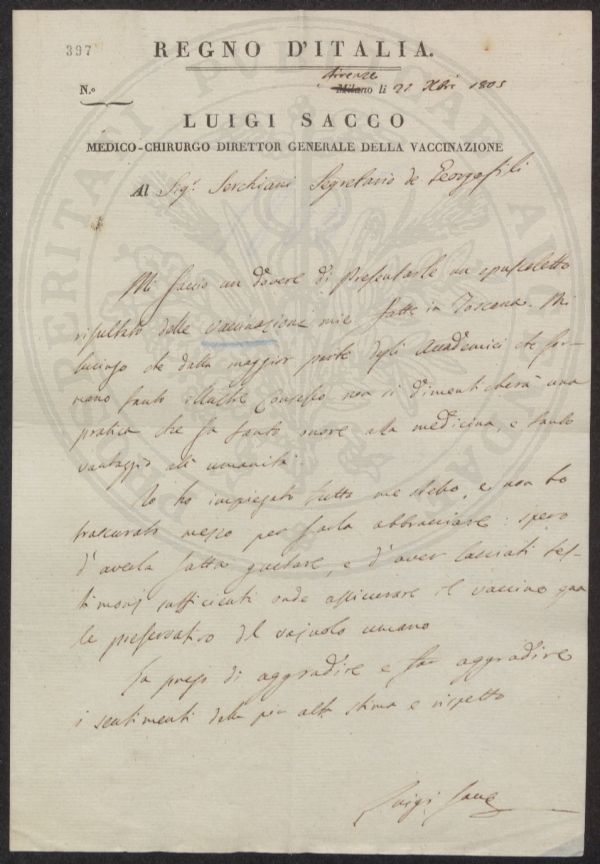 397
REGNO D'ITALIA.
Firenze
N.º Milano li 21 Xbr 1805
LUIGI SACCO
MEDICO-CHIRURGO DIRETTOR GENERALE DELLA VACCINAZIONE
Al Sig.r Serchiani Segretario de Georgofili
Mi faccio un dovere di presentarle un opuscoletto
risultato delle vaccinazioni mie fatte in Toscana. Mi
lusingo che dalla maggior parte degli Academici che for-
mano tanto consesso non si dimenticherà una
pratica che fa tanto onore alla medicina, e tanto
vantaggio all umanità.
Io ho impiegato tutto me stesso, e non ho
trascurato mezzo per farla abbracciare: spero
d'averla fatta gustare, e d'aver lasciati tes-
timonj sufficienti onde assicurare il vaccino qua
le preservativo del vajuolo umano
La prego di aggradire e far aggradire
i sentimenti della più alta stima e rispetto
Luigi Sacco